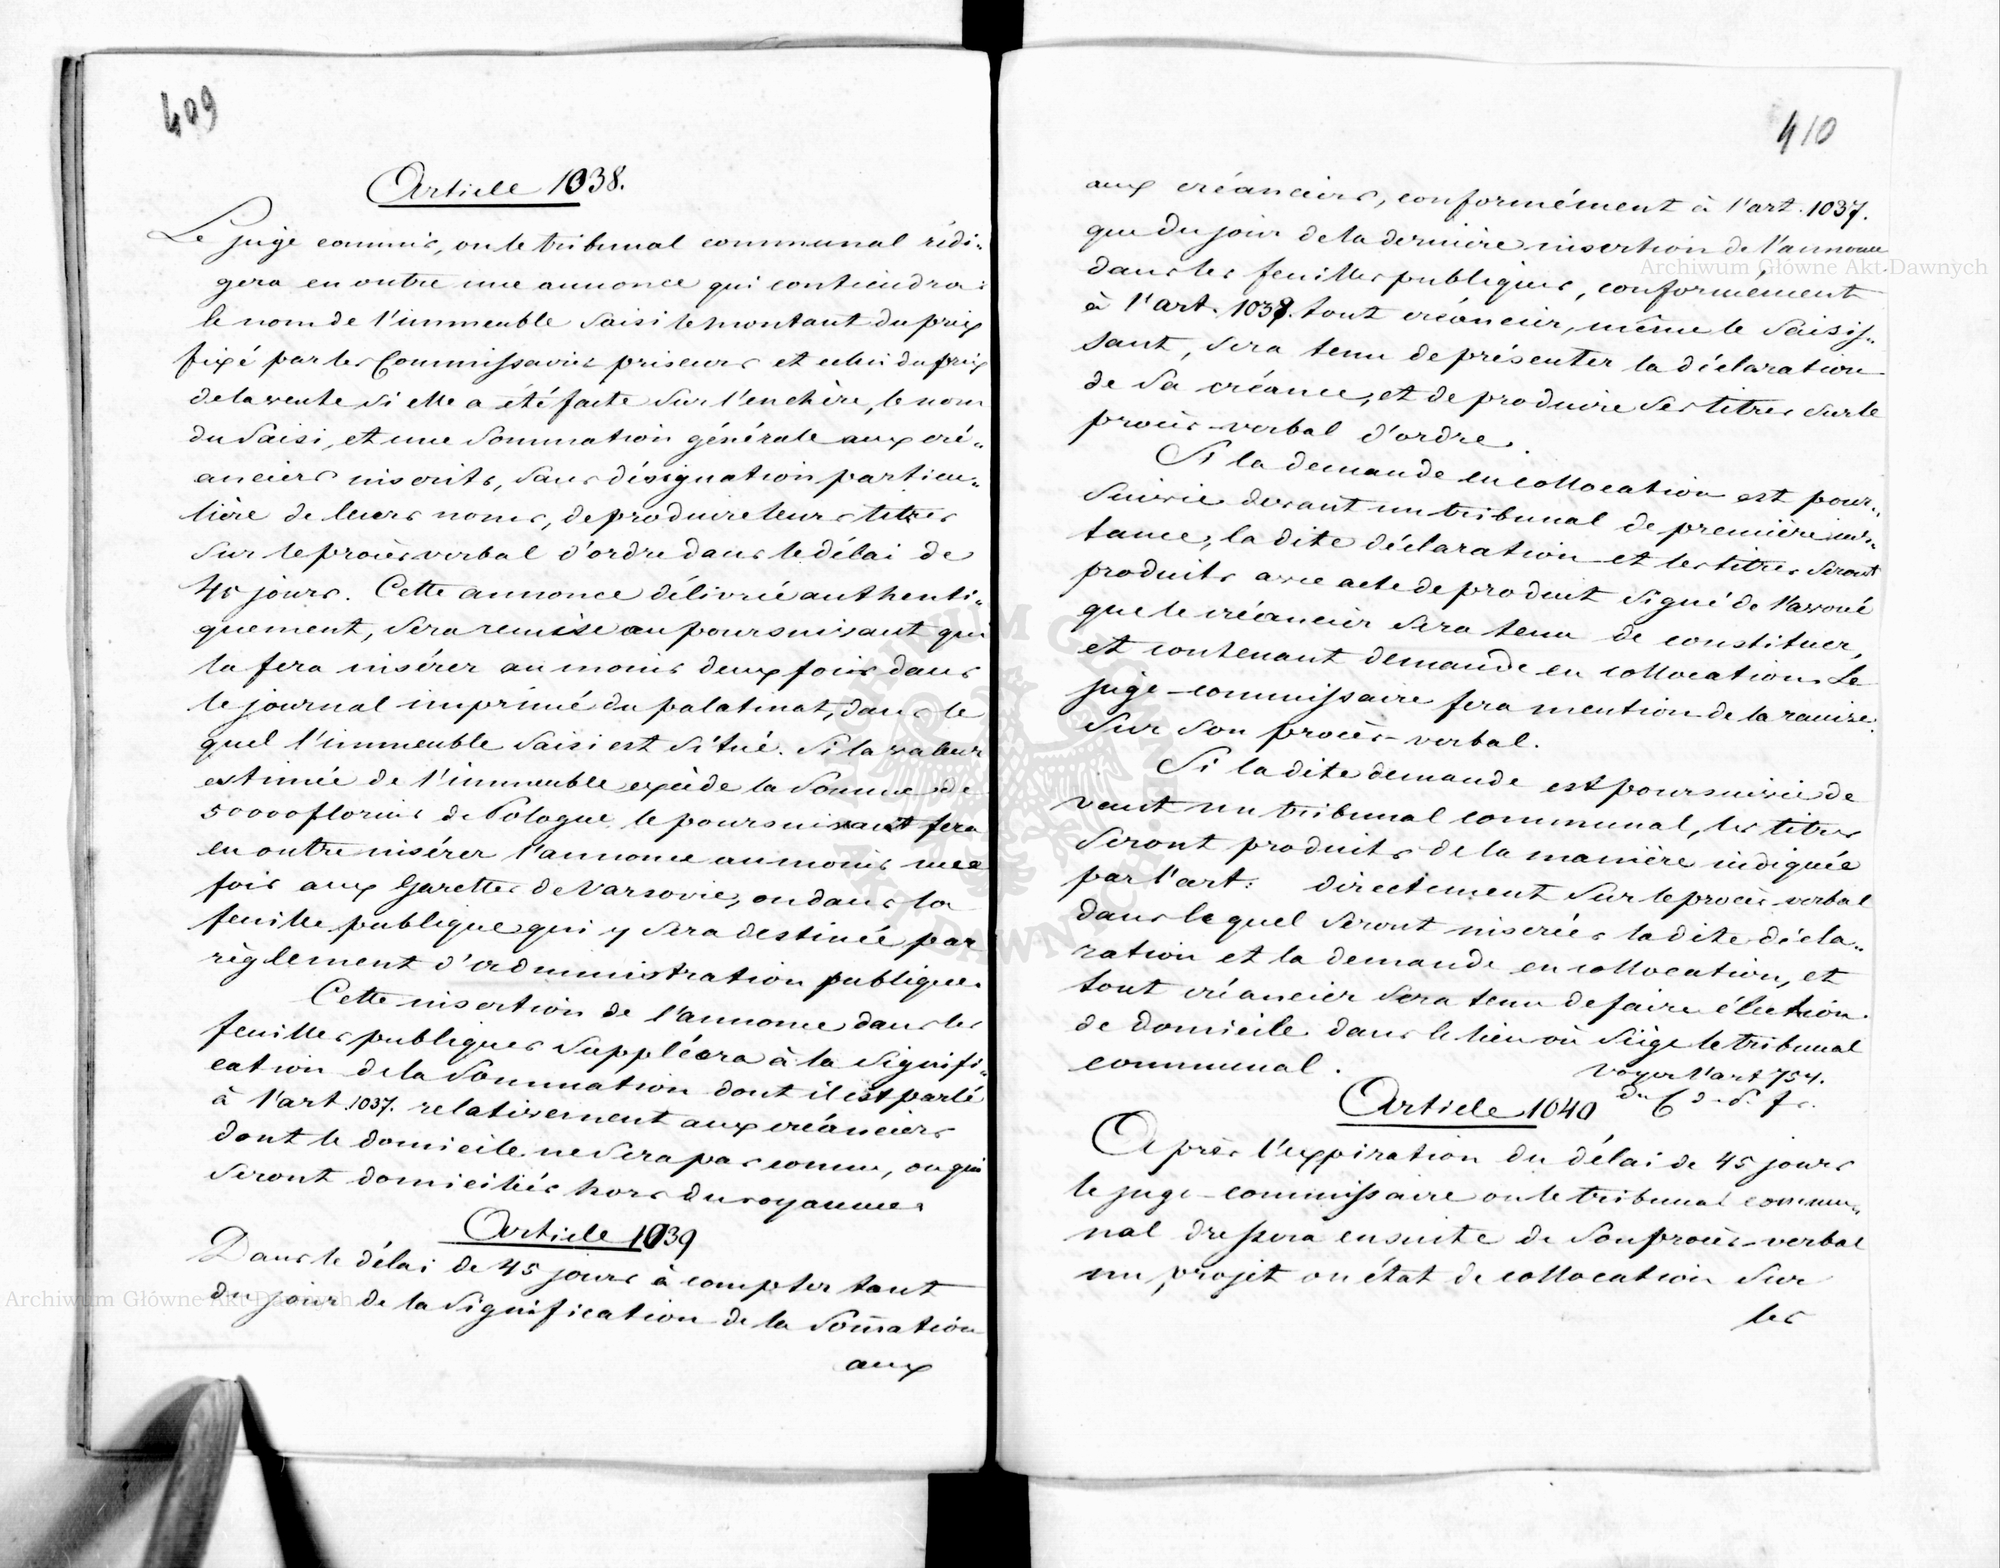 409
Article 1038.
Le juge commis, ou le tribunal communal rédi„
gera en outre une annonce qui contiendra:
le nom de l'immeuble saisi le montant du prix
fixé par les Commissaires priseurs et celui du prix
de la vente si elle a été faite sur l'enchère, le nom
du saisi, et une sommation générale aux cré„
anciers inscrits, sans désignation particu„
lière de leurs noms, de produire leurs titres
sur le procès verbal d'ordre dans le délai de
45 jours. Cette annonce délivrée authenti„
quement, sera remise au poursuivant qui
la fera insérer au moins deux fois dans
le journal imprimé du palatinat, dans le
quel l'immeuble saisi est situé. Si la valeur
estimée de l'immeuble excède la somme de
50000 florins de Pologne, le poursuivant fera
en outre insérer l'annonce au moins une
fois aux Gazettes de Varsovie, ou dans la
feuille publique qui y sera destinée par
règlement d'administration publique.
Cette insertion de l'annonce dans les
feuilles publiques suppléera à la signifi„
cation de la sommation dont il est parlé
à l'art. 1037. relativement aux créanciers
dont le domicile ne sera pas connu, ou qui
seront domiciliés hors du royaume.
Article 1039
Dans le délai de 45 jours à compter tant
du jour de la signification de la Som̄ation
aux
410
aux créanciers, conformément à l'art. 1037.
que du jour de la dernière insertion de l'annonce
dans les feuilles publiques, conformément
à l'art. 1038. tout créancier, même le saisis„
sant, sera tenu de présenter la déclaration
de sa créance, et de produire ses titres sur le
procès-verbal d'ordre.
Si la demande en collocation est pour„
suivie devant un tribunal de première ins„
tance, la dite déclaration et les titres seront
produits avec acte de produit signé de l'avoué
que le créancier sera tenu de constituer,
et contenant demande en collocation. Le
juge-commissaire fera mention de la remise
sur son procès-verbal.
Si la dite demande est poursuivie de
vant un tribunal communal, les titres
seront produits de la manière indiquée
par l'art: directement sur le procès verbal
dans lequel seront insérées la dite décla„
ration et la demande en collocation, et
tout créancier sera tenu de faire élection
de domicile dans le lieu où siège le tribunal
communal.
Voyez l'art 754.
du C d. P. fr.
Article 1040
Après l'expiration du délai de 45 jours
le juge-commissaire ou le tribunal commu„
nal dressera ensuite de son procès-verbal
un projet ou état de collocation sur
les
Archiwum Główne Akt Dawnych
Archiwum Główne Akt Dawnych
ARCHIWUM GŁÓWNE AKT DAWNYCH